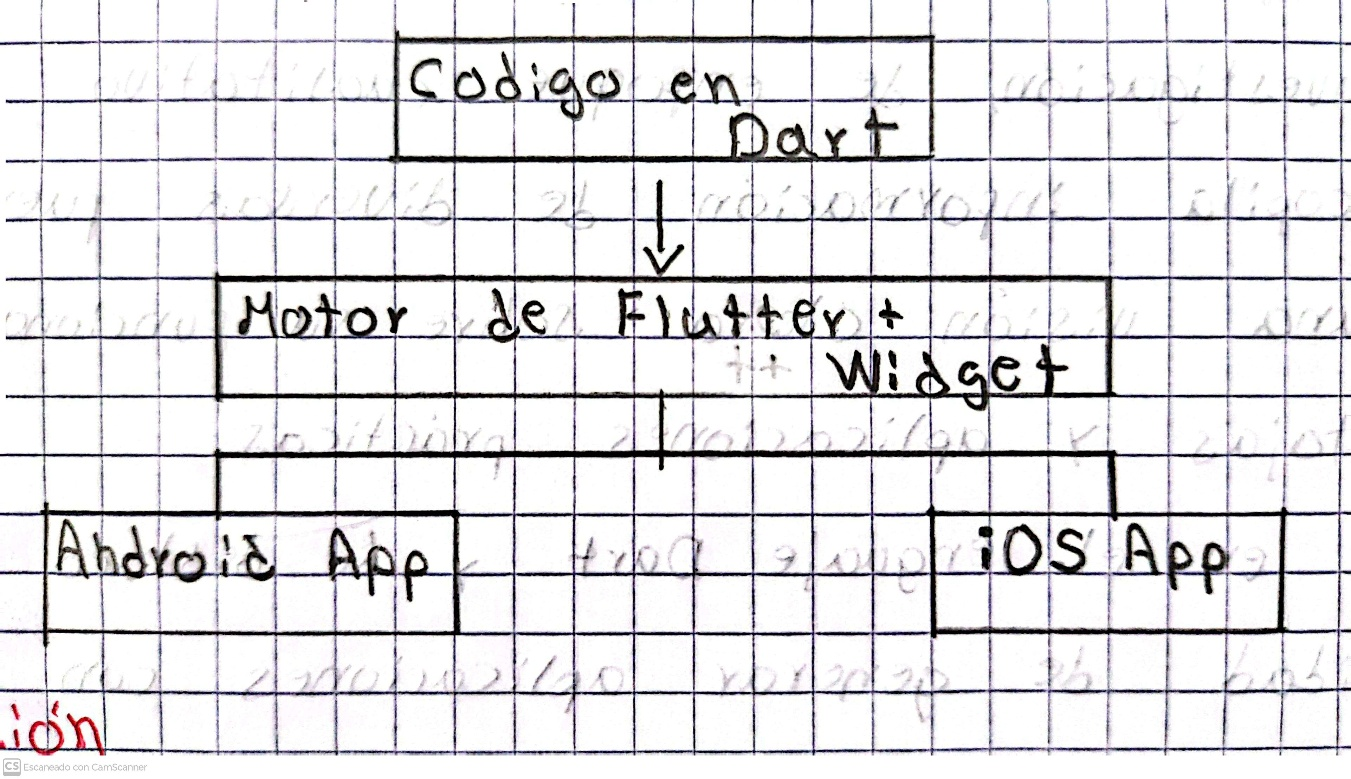 Codigo en
Dart
Motor de Flutter +
Widget
Android App
iOS App
ión
CS Escaneado con CamScanner